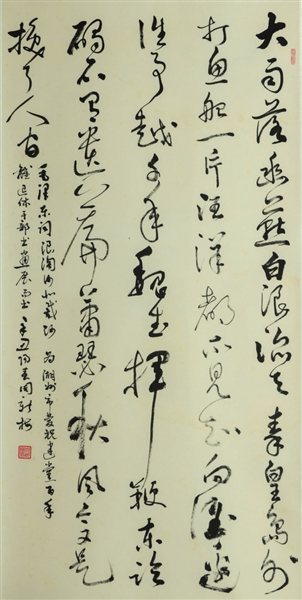 大雨落幽燕白浪滔天秦皇岛外
打鱼船一片汪洋都不见知向谁边
往事越千年魏武挥鞭东临
碣石有遗篇萧瑟秋风今又是
换了人间
毛泽东词浪淘沙北戴河 为湖州市庆祝建党百年
离退休干部书画展而书 辛丑